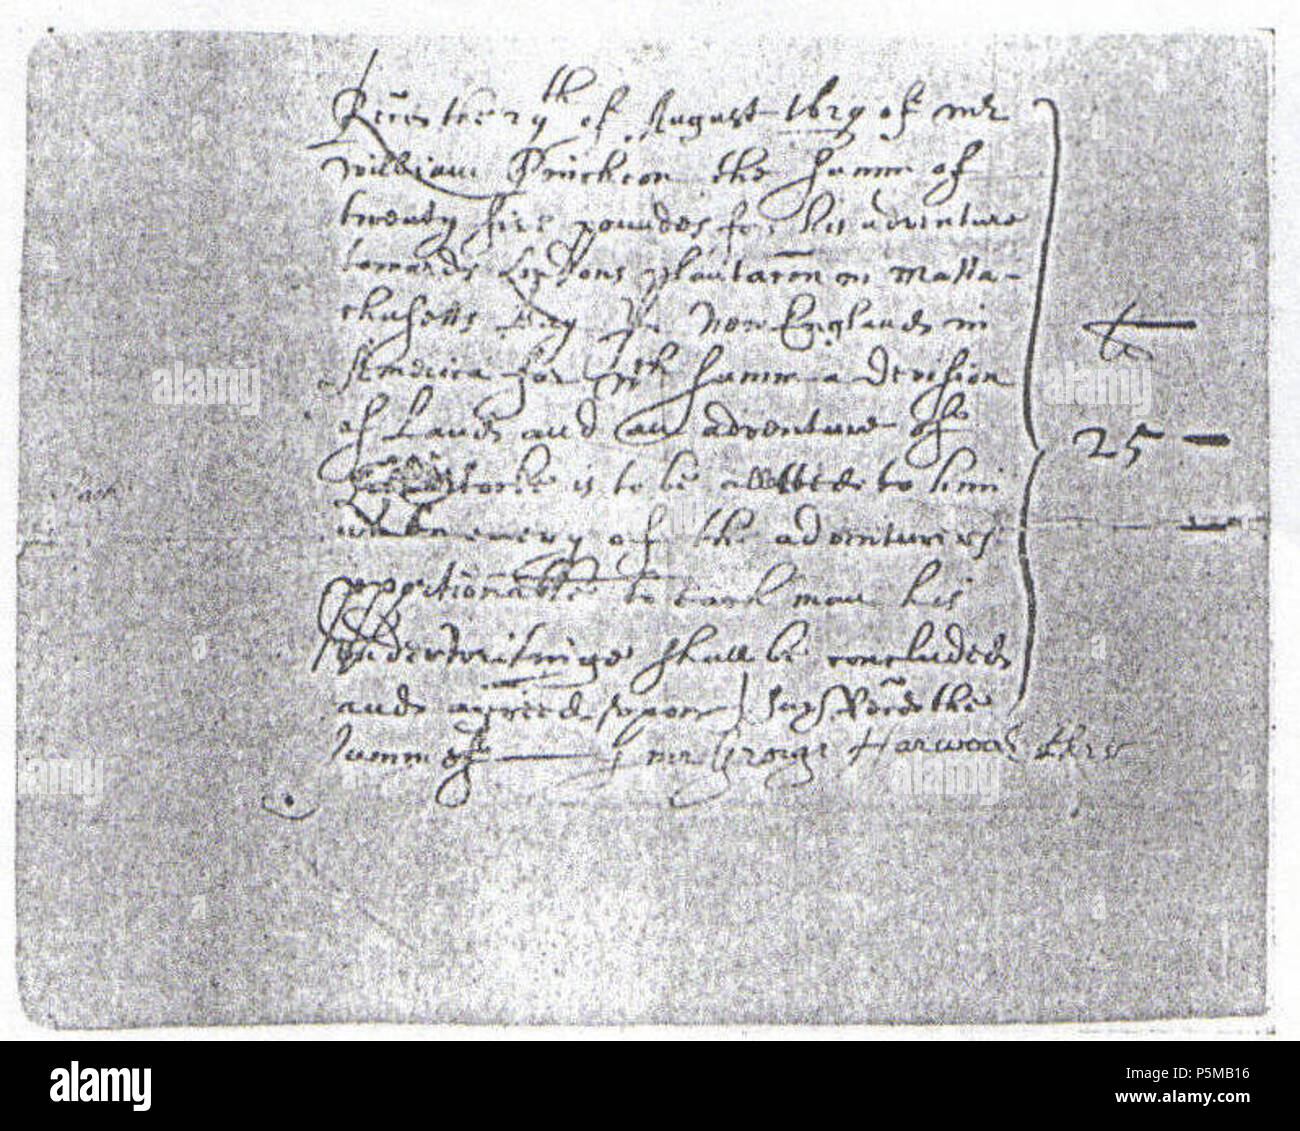 Receved the 29th of August 1629 of mr
William Pinchon the summ of
twenty five poundes for his adventure
towards Londons plantacon in Massa-
chusetts Bay in New England in
America for wch summ a devision
of Lands and an adventure of
stocke is to be allotted to him
when every of the adventurers
pportionable to each man his
underwritinge shall be concluded
and agreed upon I say Reced the
summ of —— p mr George Harwood
25 —
alamy
alamy
Image ID: P5MB16
www.alamy.com